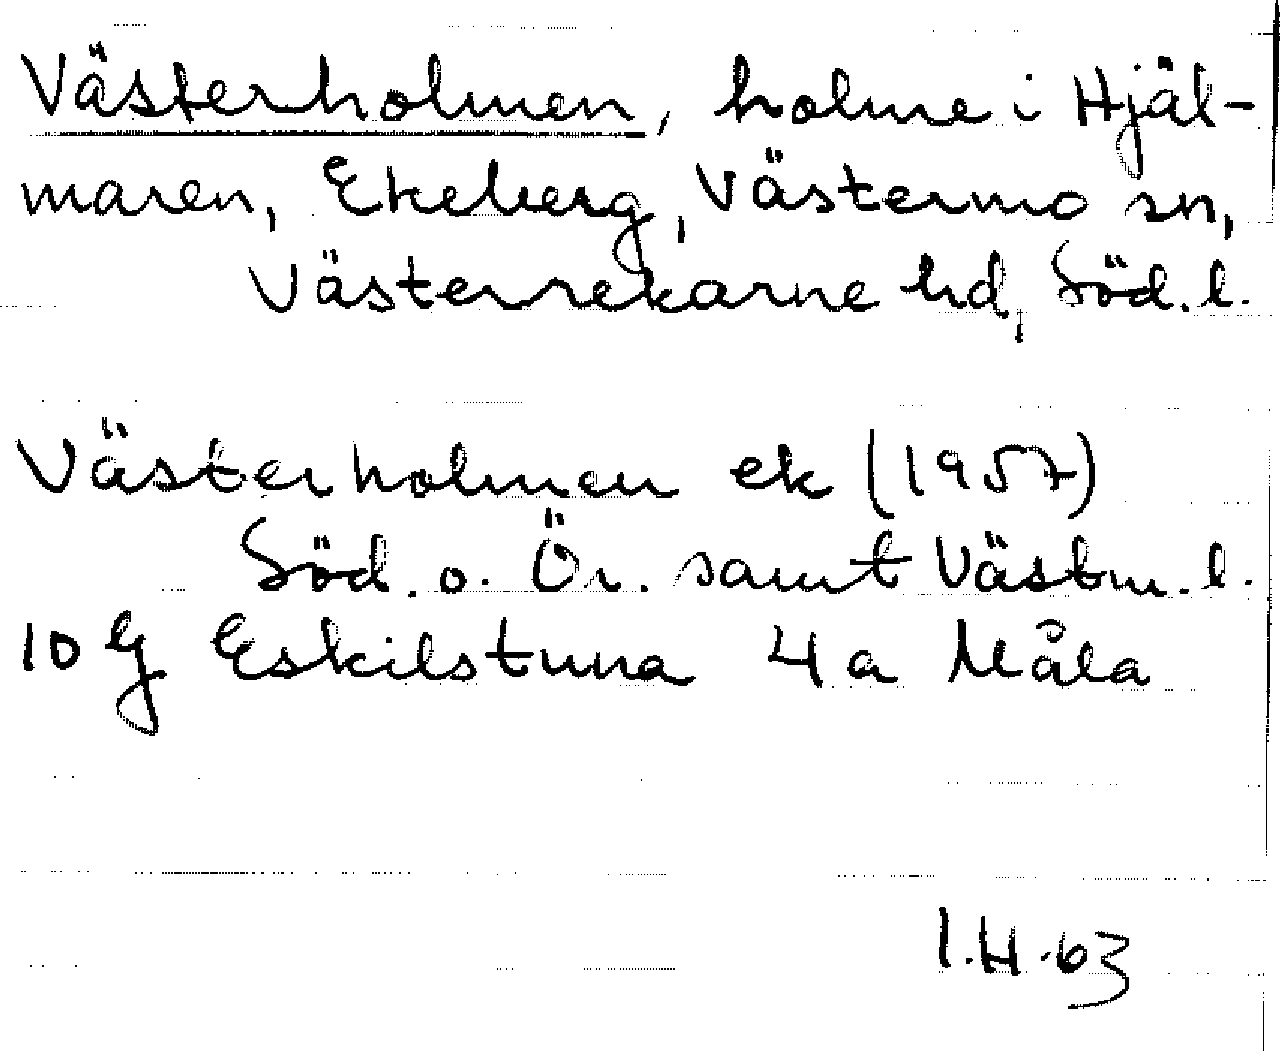 Västerholmen, holme i Hjäl-
maren, Ekeberg, Västermo sn,
Västerrekarne hd, Söd. l.
Västerholmen ek (1957)
Söd. o. Ör. samt Västm. l.
10 G Eskilstuna 4 a Måla
I.H.63